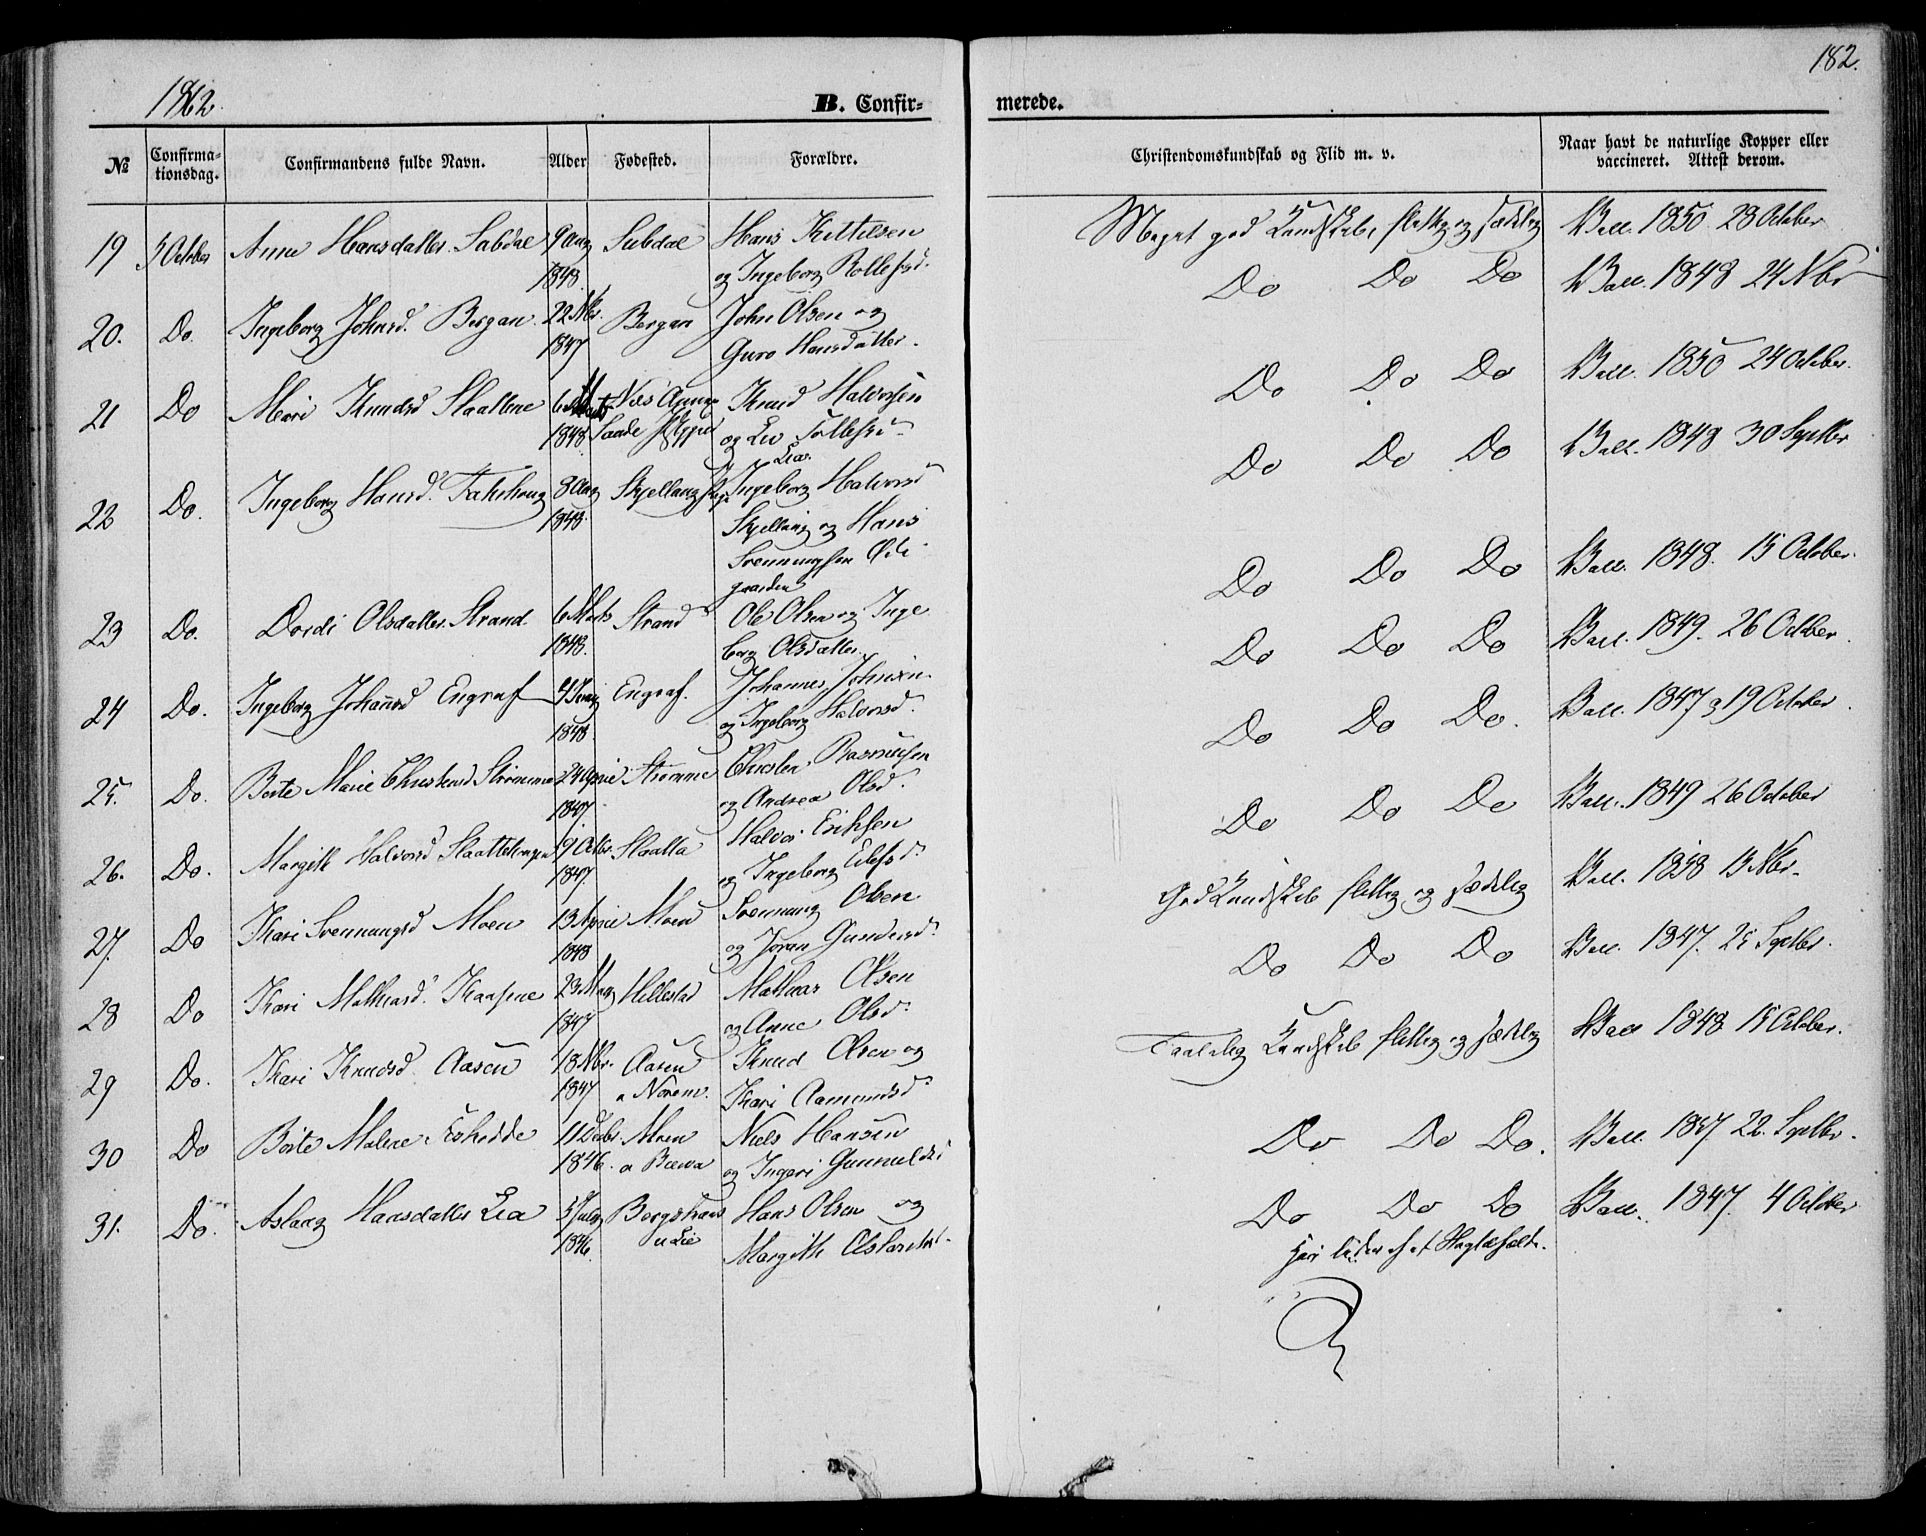 182.
1862.
B. Confir-
merede.
№
Confirma-
tionsdag.
Confirmandens fulde Navn.
Alder
Fødested.
Forældre.
Christendomskundskab og Flid m. v.
Naar havt de naturlige Kopper eller
vaccineret. Attest derom.
19 5 October Anne Hansdatter Subdal 9 Aug Subdal Hans Kittilsen Meget god Kundskab, flittig og sædelig Vacc. 1850 28 October
1848. og Ingeborg Rollefsd.
20. Do. Ingeborg Johnsd. Bergan 22 Nbr. Bergan John Olsen og Do Do Do Vacc. 1848 24 Nbr
1847 Guro Hansdatter.
21 Do Mari Knudsd Slaattene 6 Marts Næs Knud Halvorsen Do Do Do Vacc. 1850 24 October.
1848. Saude og Liv Tollefsd.
22 Do. Ingeborg Hansd. 8 Aug Ingeborg Halvorsd Do Do Do Vacc. 1848 30 Septbr
1848. og Hans
Svennungsen Øde
gaarden
23 Do. Dordi Olsdatter Strand 6 Marts Strand Ole Olsen og Inge Do Do Do Vacc. 1848. 15 October.
1848. borg Olsdatter.
24 Do. Ingeborg Johansd Engraf Engraf. Johannes Johnsen Do Do Do Vacc. 1849. 26 October.
1848 og Ingeborg Halvorsd.
25. Do. Berte Marie Christensd Strømme 24 April Strømme Christen Rasmusen Do Do Do. Vacc. 1847 19 October.
1847. og Andrea Olsd.
26. Do. Margith Halvorsd 9 Octbr. Slaatta Halvor Eriksen Do Do Do Vacc. 1849 26 October
1847. og Ingeborg
27. Do Kari Svennungsd Moen 13 April Moen Svennung Olsen God Kundskab flittig og sædelig Vacc. 1858 13 Nbr.
1848 og Jøran Gundersd.
28 Do Kari Mathiasd. Kaasene 23 Hellestad Mathias Olsen Do Do Do Vacc. 1847. 25 Septbr.
1847 og Anne Olsd.
29 Do. Kari Knudsd. Aasen 18 Nbr. Aasen Knud Olsen og Taalelig Kundskab flittig og sædelig Vacc 1848 15 October.
1847 Kari Aamundsd.
30 Do Berte Malene 11 Decbr. Moen Niels Hansen Do Do Do. Vacc. 22 Septbr.
1846. og Ingeri
31. Do. Aslaug Hansdatter Lia 5 July Hans Olsen og Do Do Do Vacc. 1847. 4 October
1846. u Lie Margith